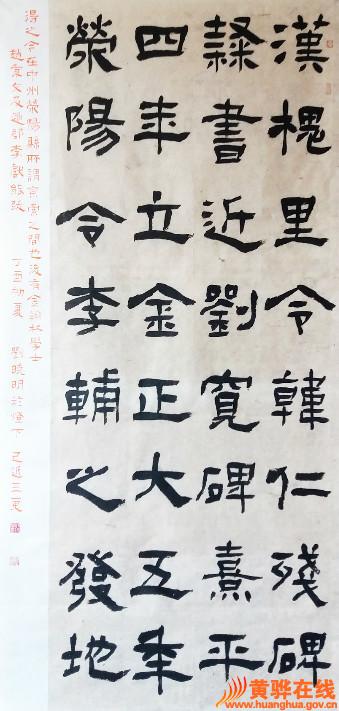 漢槐里令韓仁殘碑
隸書近劉寬碑熹平
四年立金正大五年
滎陽令李輔之發地
得之今在中州滎陽縣所謂京索之間也後有金詞林學士
趙秉文及延邨李獻能跋
丁酉初夏 劉曉明於燈下 已近三更
黄骅在线
www.huanghua.gov.cn